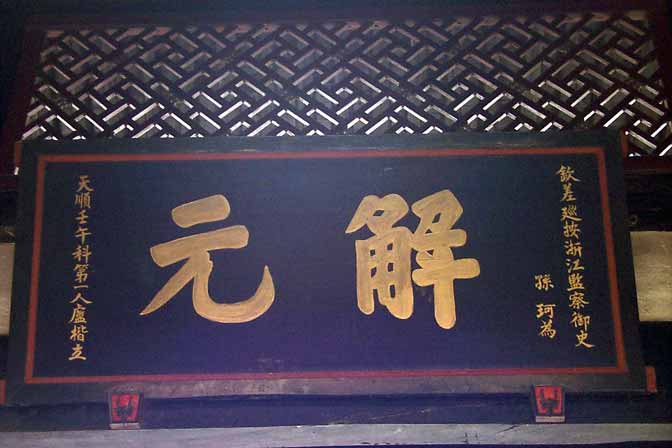 欽差廵按浙江監察御史
孫珂為
解元
天順壬午科第一人盧楷立